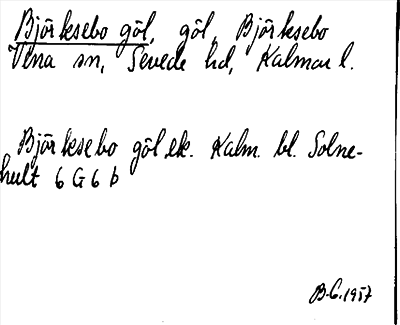 Björksebo göl, göl, Björksebo
Vena sn, Sevede hd, Kalmar l.
Björksebo göl ek. Kalm. bl. Solne-
hult 6 G 6 b
B.G. 1957